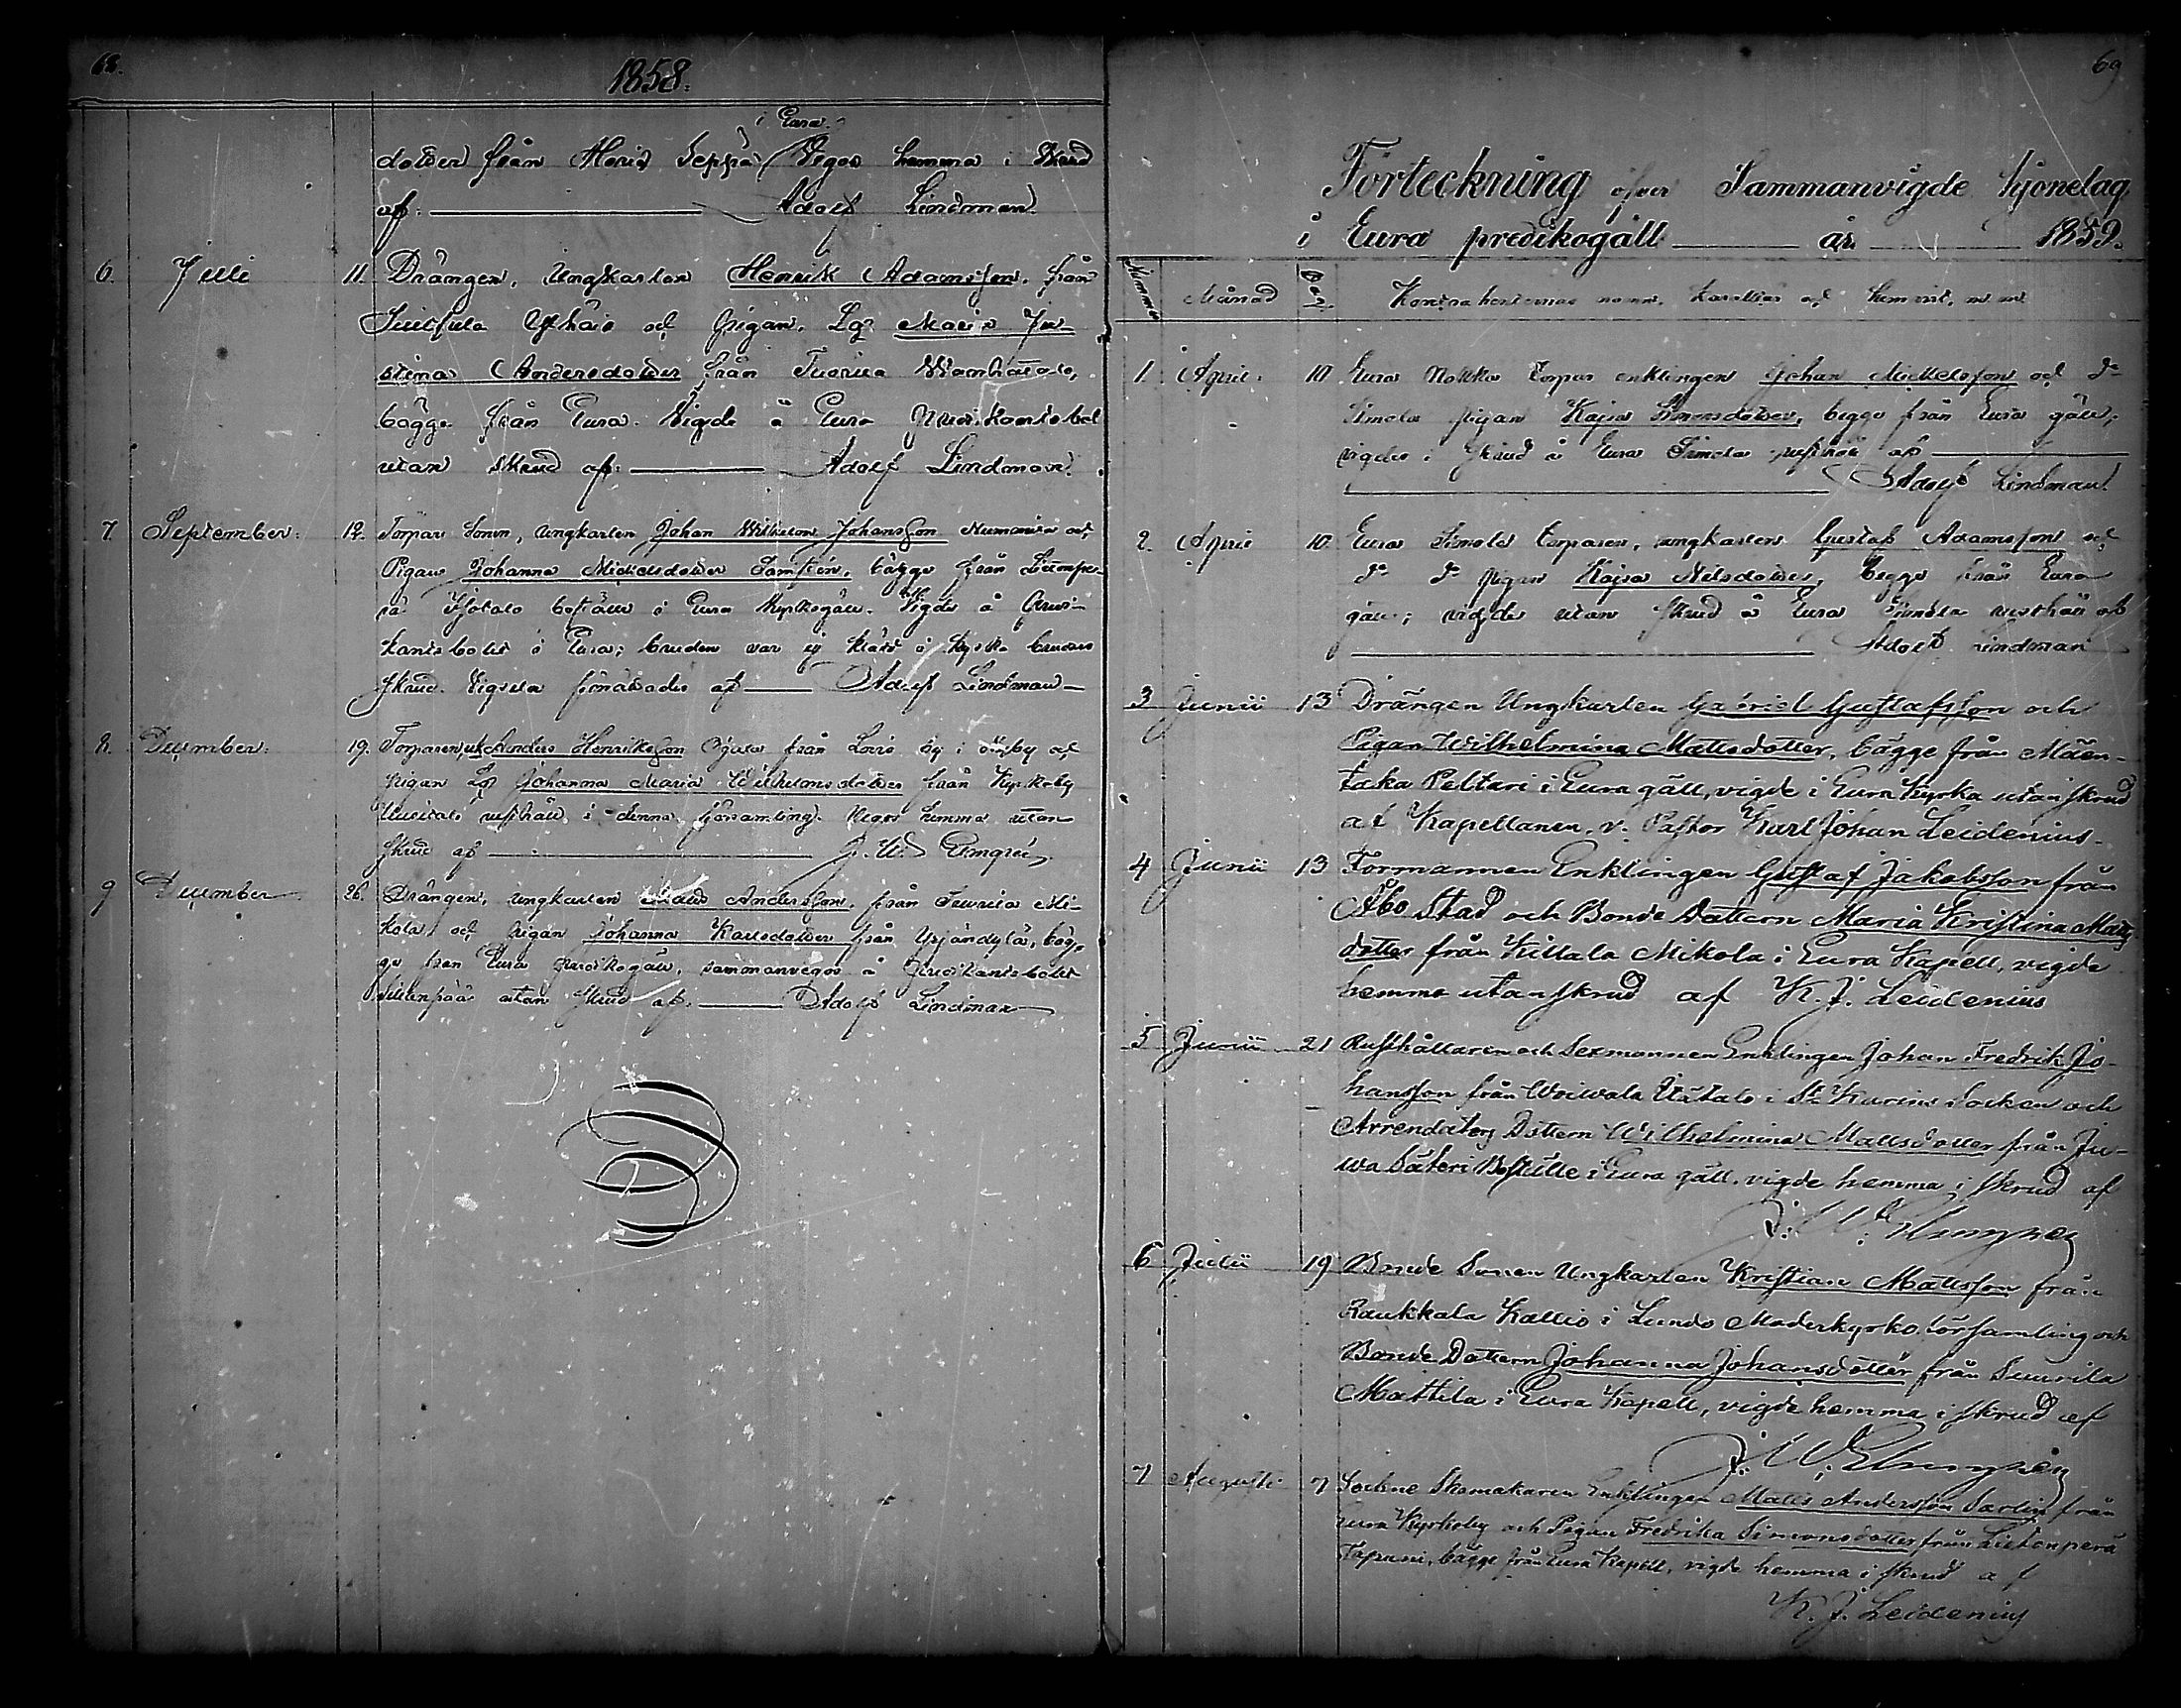 68.
1858.
i Eura.
dotter från Heris Seppä Viges hemma i skrud
af: Adolf Lindman.
6. Juli 11. Drängen, Ungkarlen Henrik Adamsson, från
och Pigan, Maria Ju-
stina Andersdotter från
bägge från Eura. Vigde å Eura
utan skrud af: Adolf Lindman.
7. September: 12. Torpare Sonen, ungkarlen Johan Wilhelm Johansson och
Pigan Johanna Mickelsdotter bägge från
i Eura Vigde å Predi-
kantsbolet i Eura; bruden var ej klädd i kyrko brudes
skrud. Vigseln förrättades af Adolf Lindman
8. December: 19. Torparen, Anders Henriksson från by i och
Pigan Johanna Maria Wilhelmsdotter från Kyrkoby
rusthåll i denna församling. Viges hemma utan
skrud af J. W. Elmgrén.
9 December 26. Drängen, ungkarlen Mats Andersson, från Mi-
kola och Pigan Johanna Karlsdotter från Yrjäntylä, bäg-
ge från Eura sammanviges å Predikantsbolet
utan skrud af: Adolf Lindman
69
Förteckning öfver Sammanvigde hjonelag
i Eura predikogäll år 1859.
Nummer Månad Dag Kontrahenternas namn, karakter och hemvist, m. m.
1. April. 10 Eura torpar enklingen Johan Mickelsson och do
Simola pigan Kajsa Simonsdotter, begge från Eura gäll,
vigdes i skrud å Eura Simola rusthåll af
Adolf Lindman.
2. April 10. Eura Simola torparen, ungkarlen Gustaf Adamsson och
do do pigan Kajsa Nilsdotter, begge från Eura
gäll; vigdes utan skrud å Eura Simola rusthåll af
Adolf Lindman
3 Junii 13 Drängen Ungkarlen Gabriel Gustafsson och
Pigan Wilhelmina Mattsdotter, bägge från Mäen-
taka Peltari i Eura gäll, vigde i Eura Kyrka utan skrud
af Kapellanen, v. Pastor Karl Johan Leidenius.
4 Junii 13 Formannen Enklingen Gustaf Jakobsson från
Åbo Stad och Bonde Dottern Maria Kristina Matts
dotter från Killala Mikola i Eura Kapell, vigde
hemma utan skrud af K. J. Leidenius
5 Junii 21 Rusthållaren och Sexmannen Enklingen Johan Fredrik Jo-
hansson från Woivala i St Karins Socken och
Arrendators Dottern Wilhelmina Mattsdotter från Ju-
wa Säteri Boställe i Eura gäll, vigde hemma i skrud af
J. W. Elmgrén
6 Julii 19 Bonde Sonen Ungkarlen Kristian Mattsson från
Raukkala Kallio i Lundo Moderkyrko församling och
Bonde Dottern Johanna Johansdotter från Suurila
Mattila i Eura Kapell, vigde hemma i skrud af
J. W. Elmgrén
7 Augusti. 7 Sockne Skomakaren Enklingen Matts Andersson Sarlin från
Eura Kyrkoby och Pigan Fredrika Simonsdotter från Lietenperä
Tapuni, bägge från Eura Kapell, vigde hemma i skrud af
K. J. Leidenius